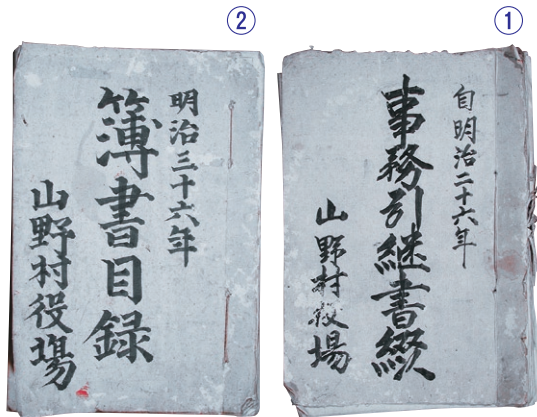 ①
自明治二十六年
事務引継書綴
山野村役場
②
明治三十六年
簿書目録
山野村役場